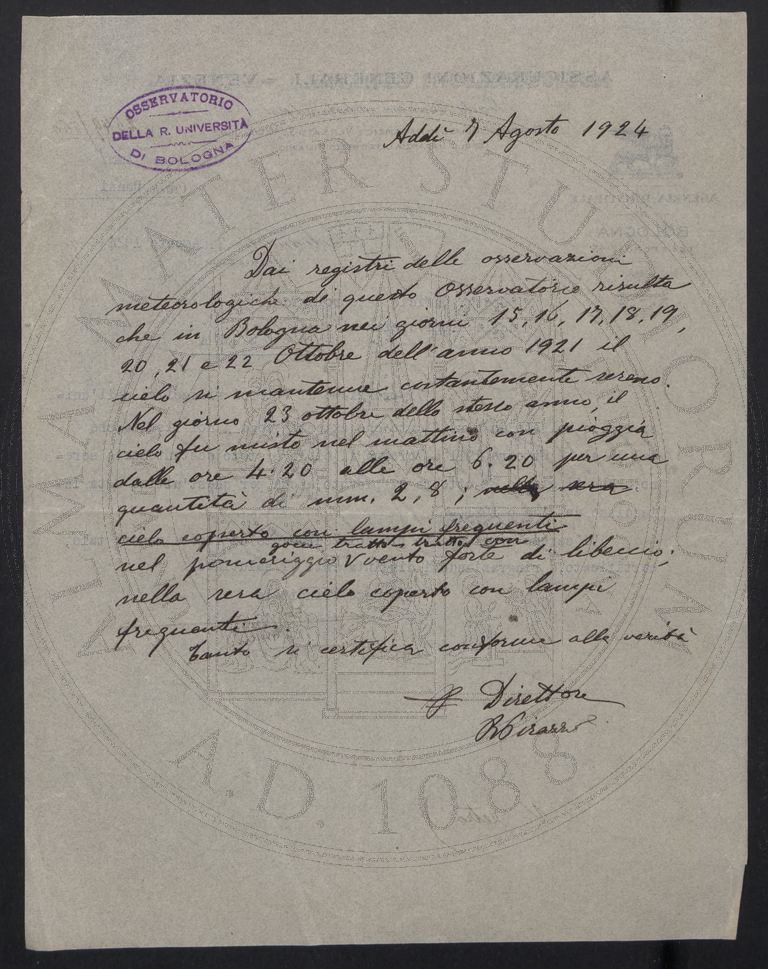 OSSERVATORIO
DELLA R. UNIVERSITÀ
DI BOLOGNA
Addì 7 Agosto 1924
Dai registri delle osservazioni
meteorologiche di questo Osservatorio risulta
che in Bologna nei giorni 15, 16, 17, 18, 19,
20, 21 e 22 Ottobre dell'anno 1921 il
cielo si mantenne costantemente sereno.
Nel giorno 23 ottobre dello stesso anno, il
cielo fu misto nel mattino con pioggia
dalle ore 4.20 alle ore 6.20 per una
quantità di mm. 2,8; nella sera
cielo coperto con lampi frequenti
tratto tratto con
nel pomeriggio vento forte di libeccio;
nella sera cielo coperto con lampi
frequenti.
Tanto si certifica conforme alla verità
Il Direttore
ASSICURAZIONI GENERALI - VENEZIA
BOLOGNA
ALMA MATER STUDIORUM
A.D. 1088